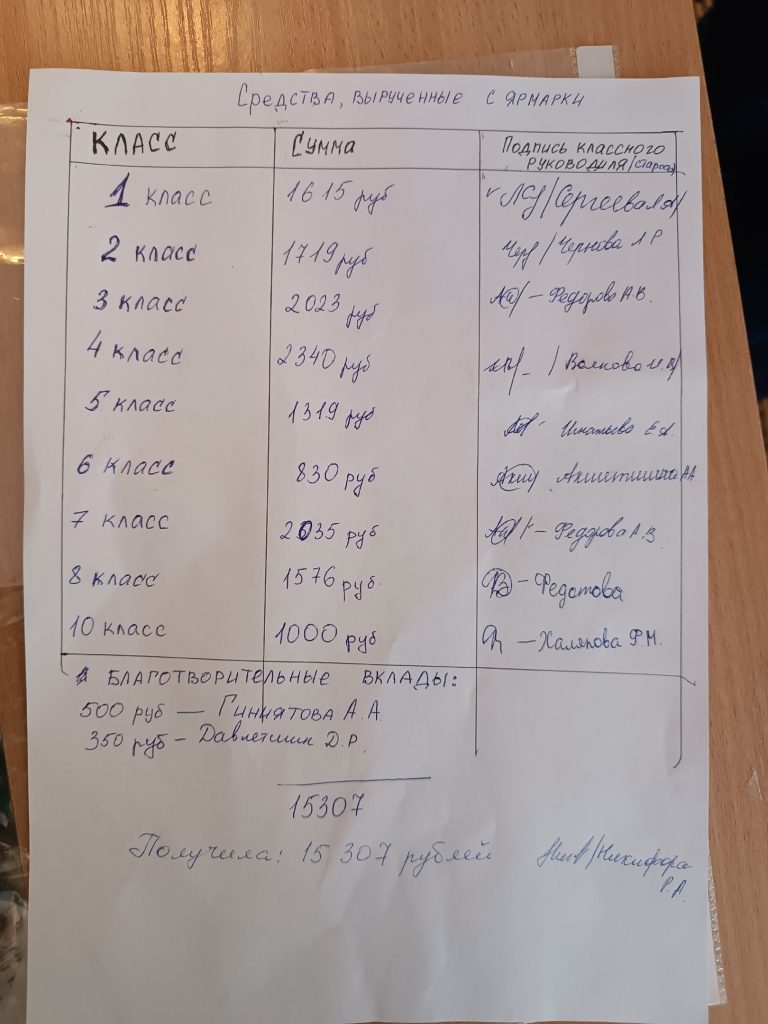 Средства, вырученные с ярмарки
Класс Сумма Подпись классного
руководиля/(старосты)
1 класс 1615 руб /Сергеева
2 класс 1719 руб /Чернова Л.Р.
3 класс 2023 руб – Федорова А.В.
4 класс 2340 руб /Волкова
5 класс 1319 руб Игнатьева Е.А.
6 класс 830 руб А.А
7 класс 2035 руб – Федорова А.В.
8 класс 1576 руб. – Федотова
10 класс 1000 руб — Халякова Ф.М.
Благотворительные вклады:
500 руб — Гиниятова А.А.
350 руб – Давлетшин Д.Р.
15307
Получила: 15 307 рублей /Никифора
Р.А.